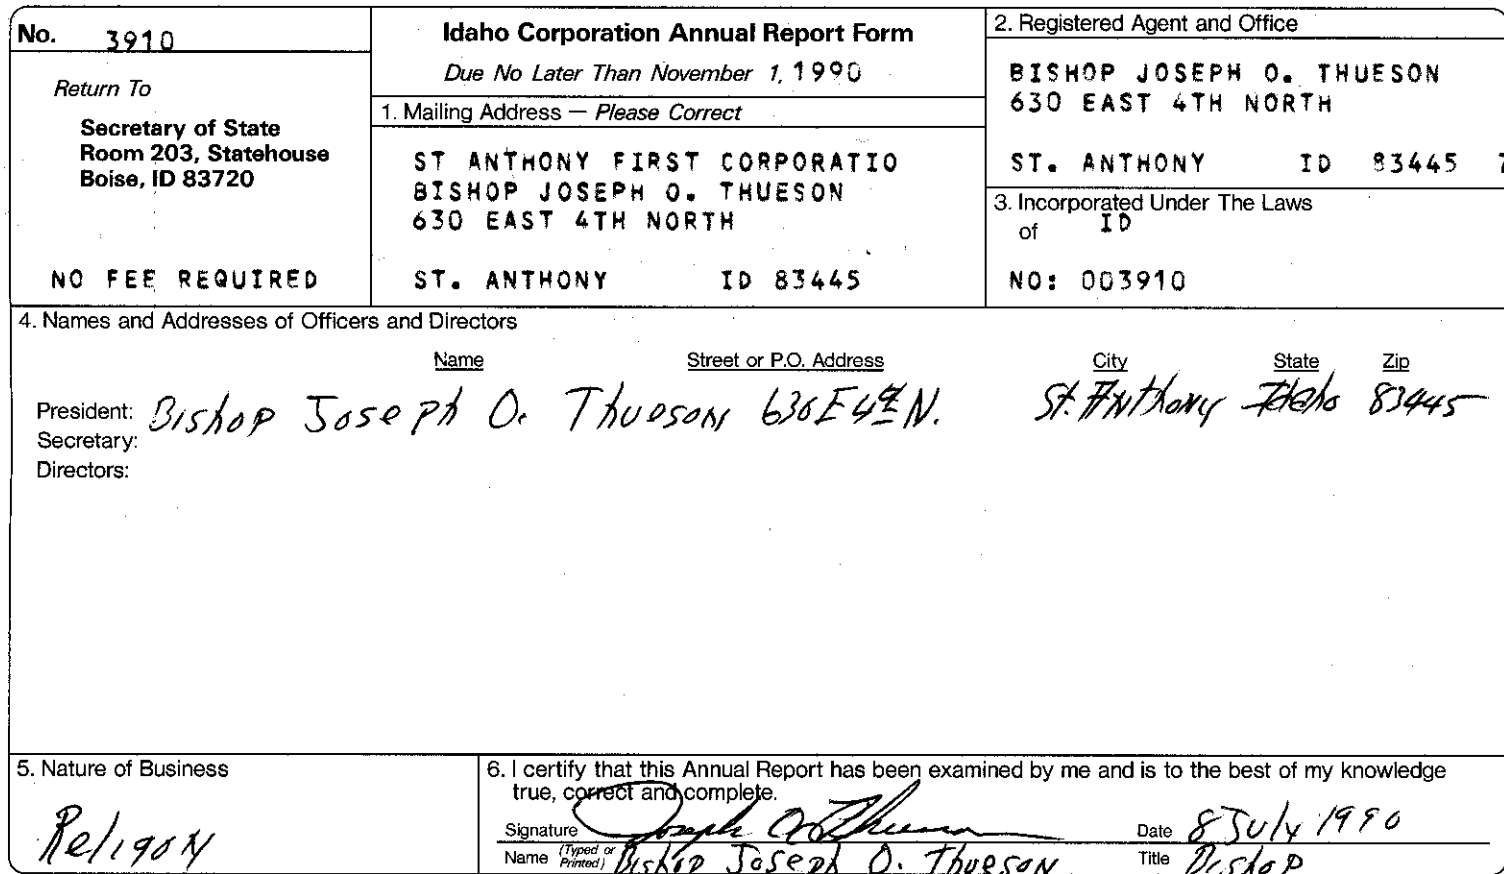 No. 3910
Return To
Secretary of State
Room 203, Statehouse
Boise, ID 83720
NO FEE REQUIRED
Idaho Corporation Annual Report Form
Due No Later Than November 1, 1990
1. Mailing Address — Please Correct
ST ANTHONY FIRST CORPORATIO
BISHOP JOSEPH O. THUESON
630 EAST 4TH NORTH
ST. ANTHONY ID 83445
2. Registered Agent and Office
BISHOP JOSEPH O. THUESON
630 EAST 4TH NORTH
ST. ANTHONY ID 83445
3. Incorporated Under The Laws
of ID
NO: 003910
4. Names and Addresses of Officers and Directors
Name Street or P.O. Address City State Zip
President: Bishop Joseph O. Thueson 630 E 4th N. St. Anthony Idaho 83445
Secretary:
Directors:
5. Nature of Business
Religon
6. I certify that this Annual Report has been examined by me and is to the best of my knowledge
true, correct and complete.
Signature Joseph O Thueson Date 8 July 1990
Name (Typed or Printed) Bishop Joseph O. Thueson Title Bishop